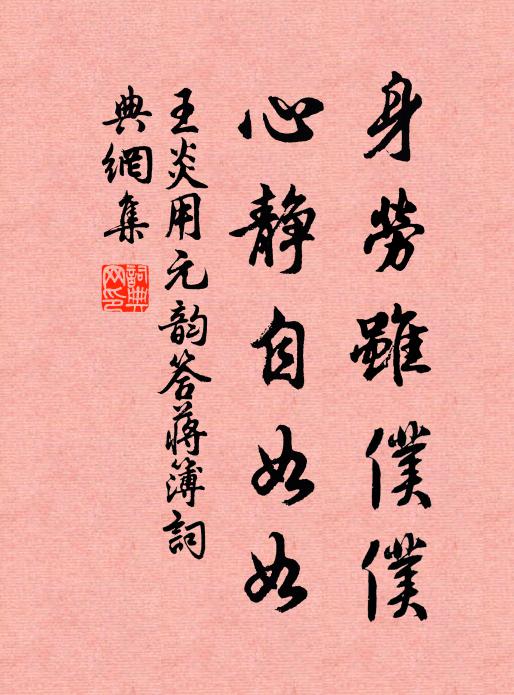 身勞雖僕僕
心靜自如如
王炎用元韵答蔣簿詞
典網集
詞典
网印